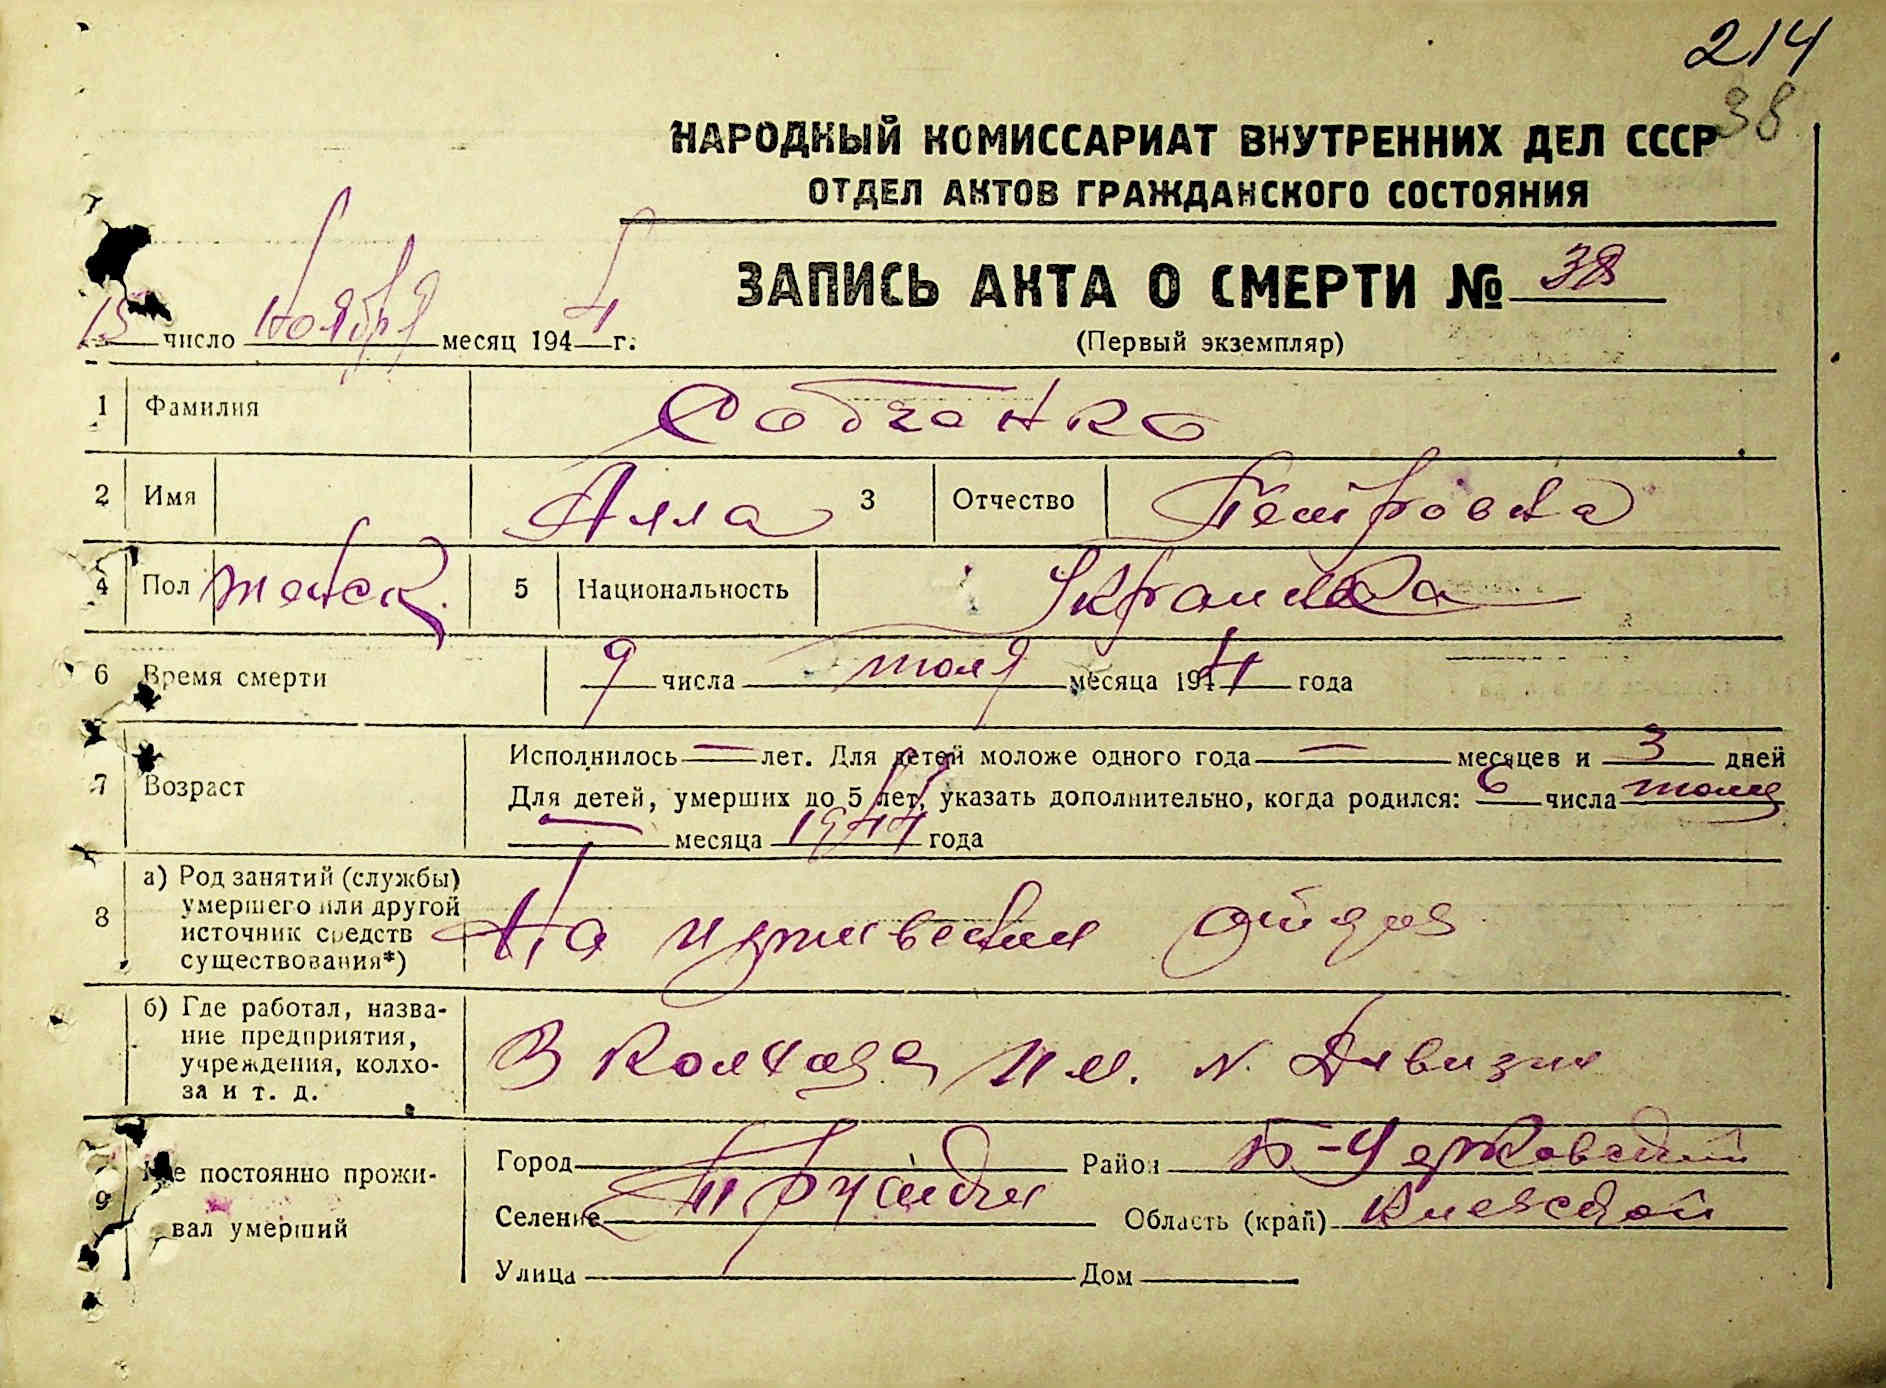 214
38
НАРОДНЫЙ КОМИССАРИАТ ВНУТРЕННИХ ДЕЛ СССР
ОТДЕЛ АКТОВ ГРАЖДАНСКОГО СОСТОЯНИЯ
ЗАПИСЬ АКТА О СМЕРТИ № 38
15 число Ноября месяц 1944 г.
(Первый экземпляр)
1 Фамилия Собченко
2 Имя Алла 3 Отчество Петровна
4 Пол женск. 5 Национальность Украинка
6 Время смерти 9 числа июля месяца 1944 года
7 Возраст Исполнилось — лет. Для детей моложе одного года — месяцев и 3 дней
Для детей, умерших до 5 лет, указать дополнительно, когда родился: 6 числа июля
— месяца 1944 года
8 а) Род занятий (службы) умершего или другой источник средств существования*) На иждивении отца
б) Где работал, название предприятия, учреждения, колхоза и т. д. В колхозе им. Дивизии
9 Где постоянно проживал умерший
Город Район Б-Церковский
Селение Область (край) Киевской
Улица Дом